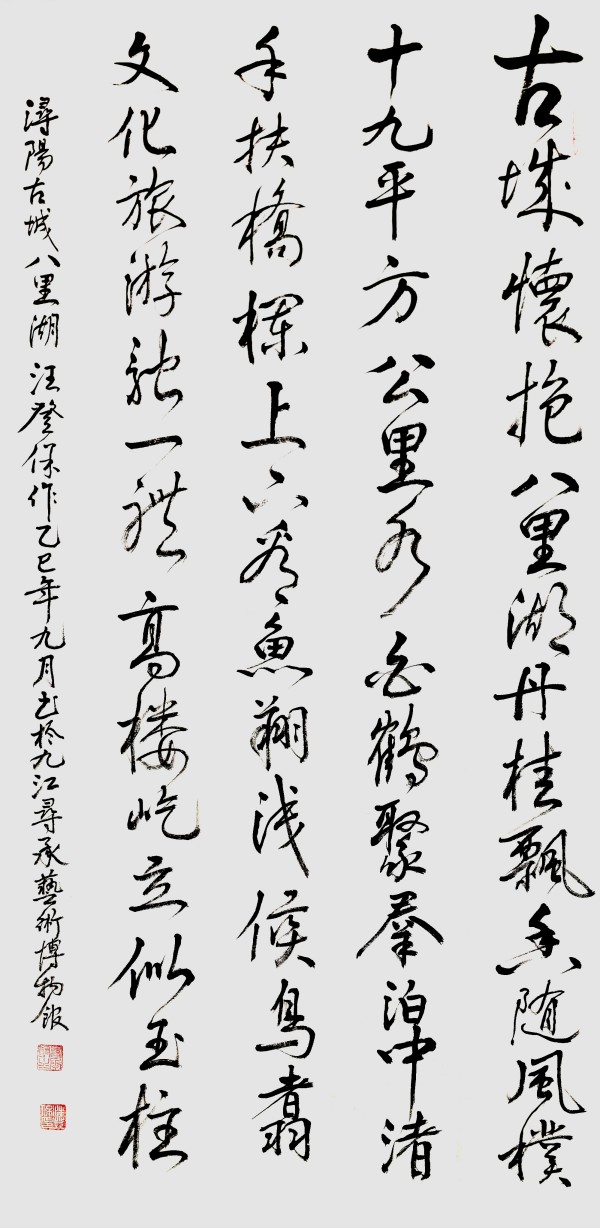 古城懷抱八里湖丹桂飄香随風樸
十九平方公里水白鶴聚羣泊中渚
手扶橋欄上下看魚翔浅候鳥翥
文化旅游融一體高楼屹立似玉柱
潯陽古城八里湖汪登保作乙巳年九月书於九江尋承藝術博物館